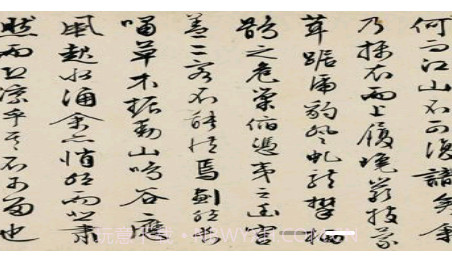 何而江山不可復識矣余
乃攝衣而上履巉巖披蒙
茸踞虎豹登虬龍攀棲
鶻之危巢俯馮夷之幽宮
蓋二客不能從焉劃然長
嘯草木振動山鳴谷應
風起水涌余亦悄然而悲肅
然而恐凜乎其不可留也